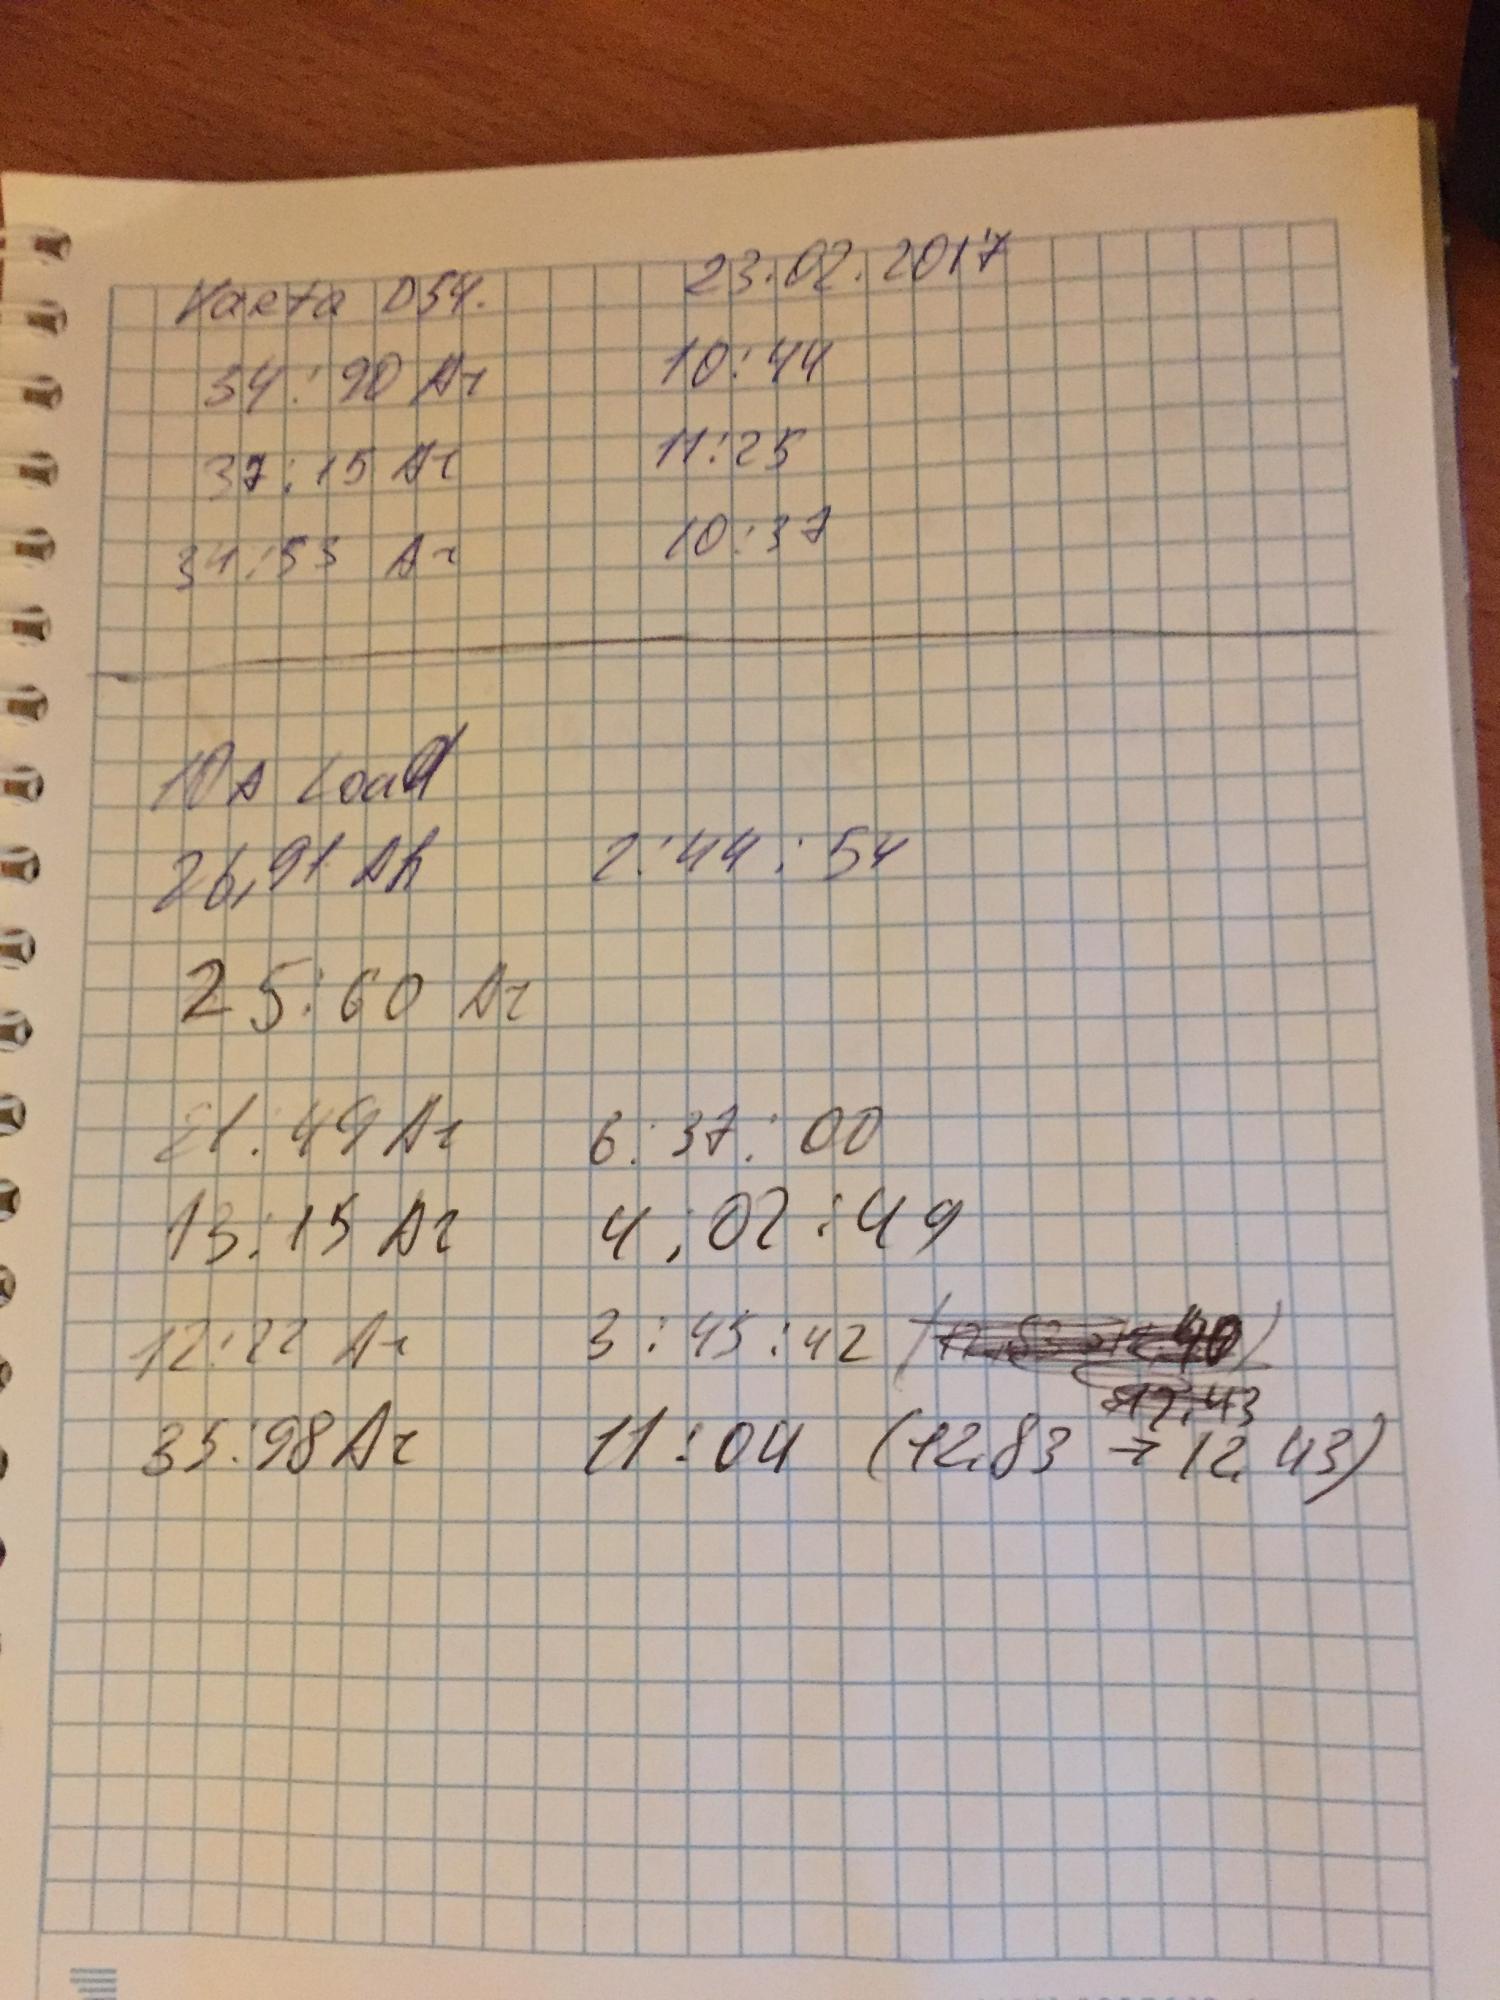 Varta D54. 23.02.2017
34:90 Ач 10:44
37:15 Ач 11:25
34:53 Ач 10:37
10A Load
26,91 Ah 2:44:54
25:60 Ач
21:49 Ач 6:37:00
13:15 Ач 4:02:49
12:22 Ач 3:45:42
12.43
35:98 Ач 11:04 (12.83 → 12.43)